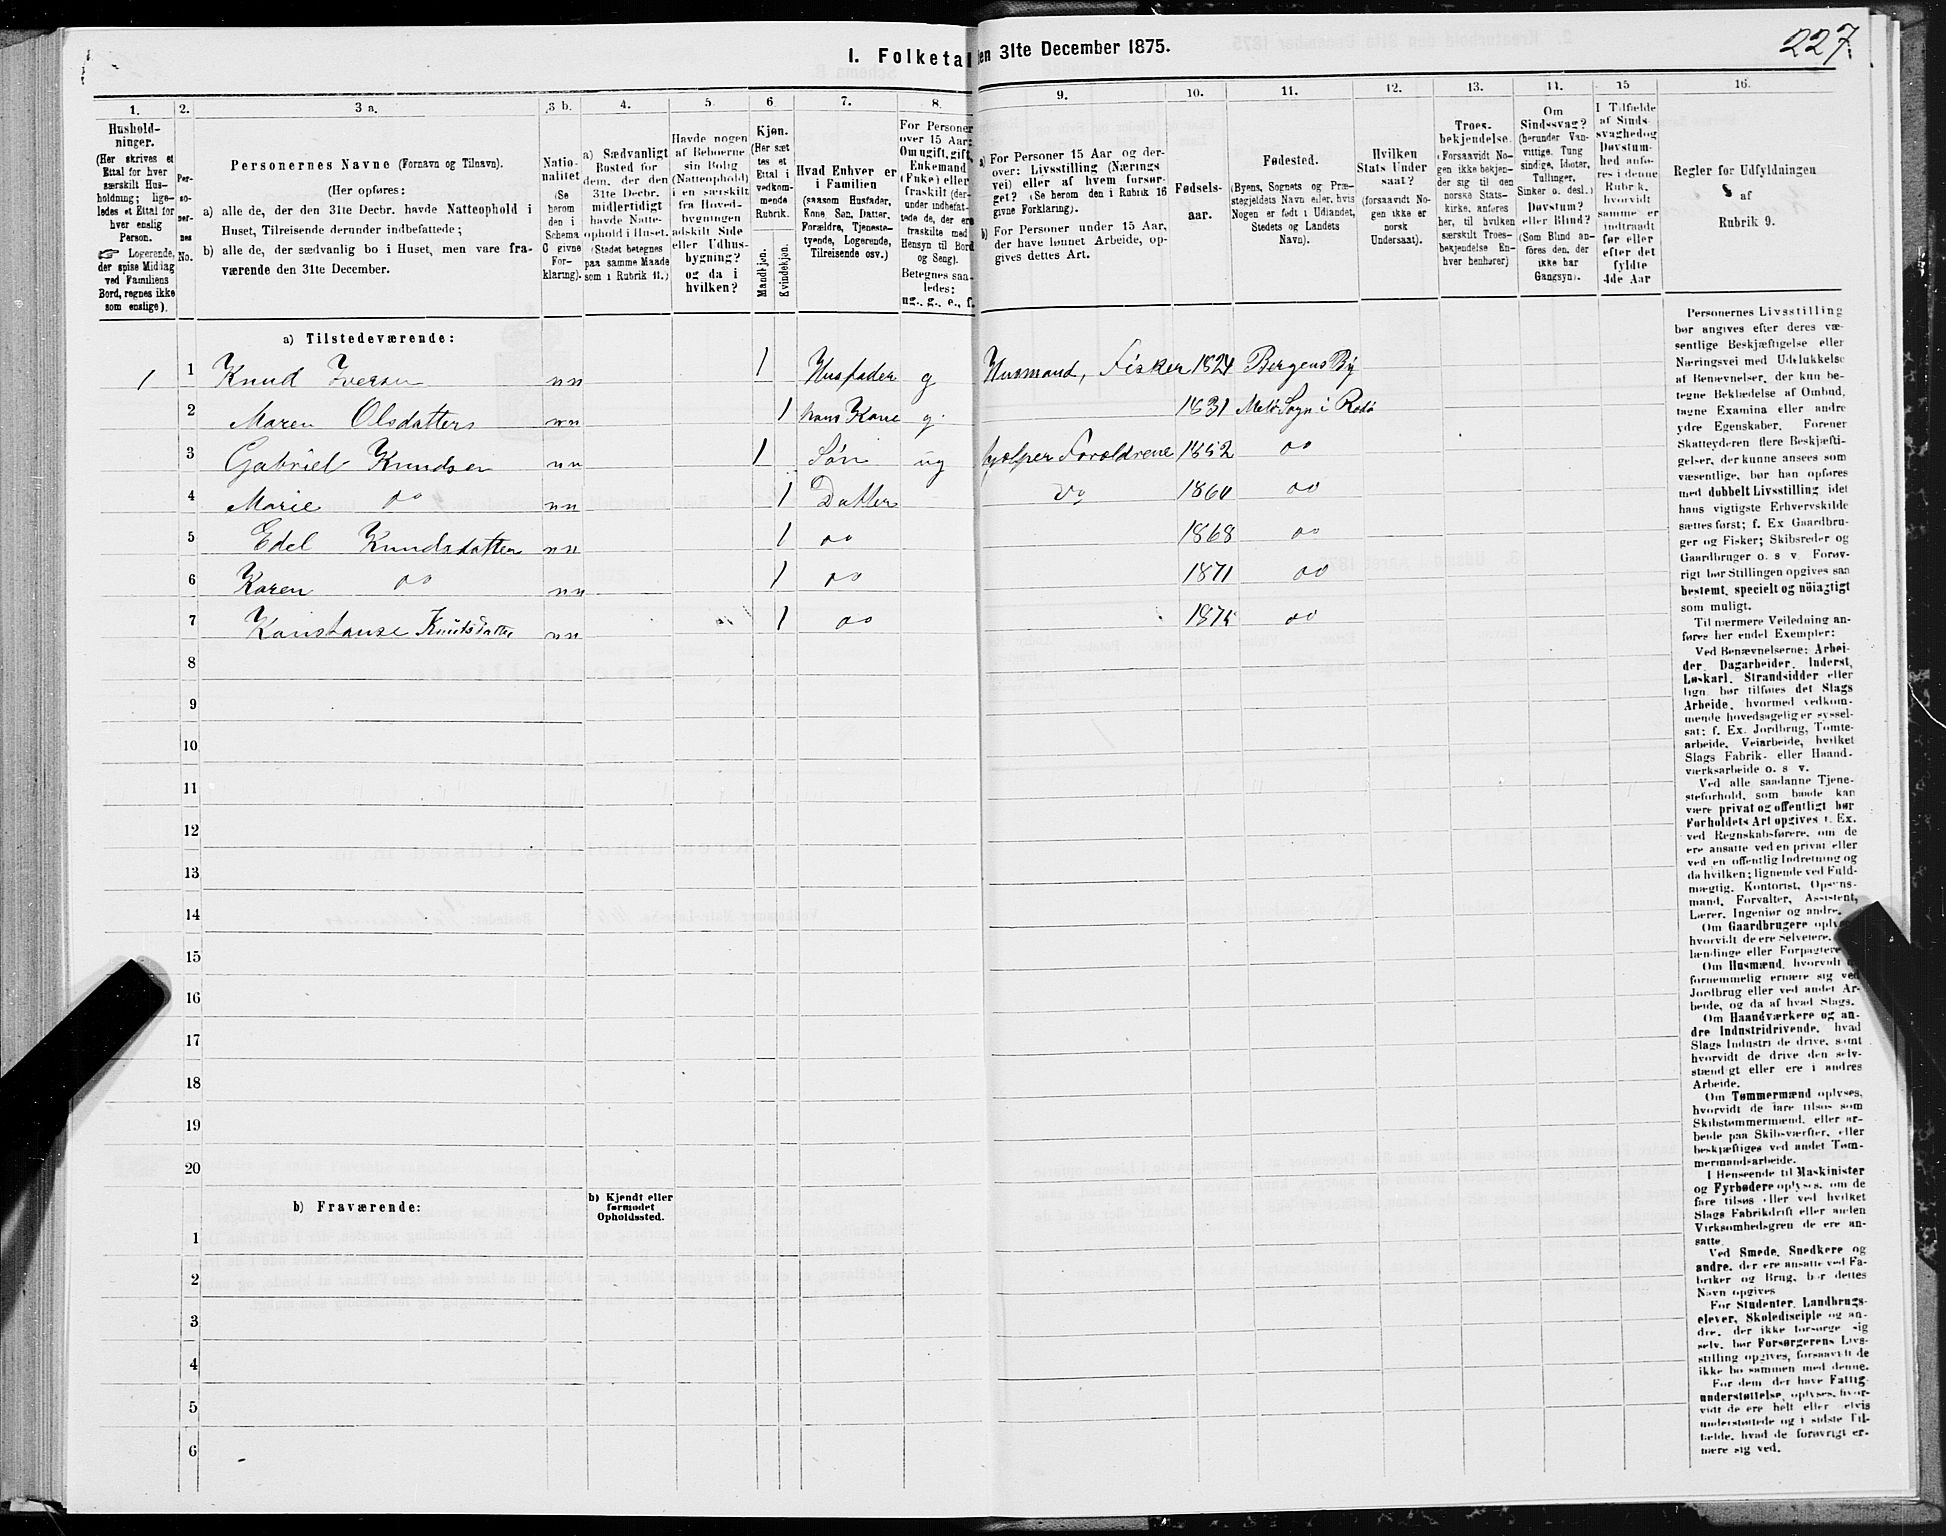 227
I. Folketal den 31te December 1875.
1. 2. 3 a. 3 b. 4. 5. 6 7. 8. 9. 10. 11. 12. 13. 14. 15 16.
Hushold-
ninger.
(Her skrives et
Ettal for hver
særskilt Hus-
holdning; lige-
ledes et Ettal for
hver enslig
Person.
☞ Logerende,
der spise Middag
ved Familiens
Bord, regnes ikke
som enslige).
Per-
so-
ner-
nes
No.
Personernes Navne (Fornavn og Tilnavn).
(Her opføres:
a) alle de, der den 31te Decbr. havde Natteophold i
Huset, Tilreisende derunder indbefattede;
b) alle de, der sædvanlig bo i Huset, men vare fra-
værende den 31te December.
Natio-
nalitet
(Se
herom
den i
Schema
C givne
For-
klaring).
a) Sædvanligt
Bosted for
dem, der den
31te Decbr.
midlertidigt
havde Natte-
ophold i Huset.
(Stedet betegnes
paa samme Maade
som i Rubrik 11.)
Havde nogen
af Beboerne
sin Bolig
(Natteophold)
i en særskilt
fra Hoved-
bygningen
adskilt Side
eller Udhus-
bygning?
og da i
hvilken?
Kjøn.
(Her sæt
tes et
Ettal i
vedkom-
mende
Rubrik.
Mandkjøn.
Kvindekjøn.
Hvad Enhver er
i Familien
(saasom Husfader,
Kone, Søn, Datter,
Forældre, Tjeneste-
tyende, Logerende,
Tilreisende osv.)
For Personer
over 15 Aar:
Om ugift, gift,
Enkemand
(Enke) eller
fraskilt (der-
under indbefat-
tede de, der ere
fraskilte med
Hensyn til Bord
og Seng).
Betegnes saa-
ledes:
ug., g., e., f.
a) For Personer 15 Aar og der-
over: Livsstilling (Nærings
vei) eller af hvem forsør-
get? (Se herom den i Rubrik 16
givne Forklaring).
b) For Personer under 15 Aar,
der have lønnet Arbeide, op-
gives dettes Art.
Fødsels-
aar.
Fødested.
(Byens, Sognets og Præ-
stegjeldets Navn eller, hvis
Nogen er født i Udlandet,
Stedets og Landets
Navn).
Hvilken
Stats Under
saat?
(forsaavidt No-
gen ikke er
norsk
Undersaat).
Troes-
bekjendelse.
(Forsaavidt No-
gen ikke bekjen-
der sig til den
norske Stats-
kirke, anføres
her, til hvilken
særskilt Troes-
bekjendelse En-
hver henhører)
Om
Sindssvag?
(herunder Van-
vittige, Tung
sindige, Idioter,
Tullinger,
Sinker o. desl.)
Døvstum?
eller Blind?
(Som Blind an-
føres den, der
ikke har
Gangsyn).
I Tilfælde
af Sinds-
svaghed og
Døvstum-
hed anfø-
res i denne
Rubrik,
hvorvidt
samme er
indtraadt
før eller
efter det
fyldte
4de Aar
Regler for Udfyldningen
af
Rubrik 9.
a) Tilstedeværende:
1 1 Knud Iversen nn 1 Husfader g Husmand, Fisker 1824 Bergens By
2 Maren Olsdatters nn 1 hans Kone g. 1831 Melø Sogn i Rødø
3 Gabriel Knudsen nn 1 Søn ug hjelper Foreldrene 1852 oo
4 Marie oo nn 1 Datter do 1860 oo
5 Edel Knudsdatter nn 1 oo 1868 oo
6 Karen oo nn 1 oo 1871 oo
7 Konstanse Knutsdatter nn 1 oo 1875 oo
8
9
10
11
12
13
14
15
16
17
18
19
20
b) Fraværende:
b) Kjendt eller
formodet
Opholdssted.
1
2
3
4
5
6
Personernes Livsstilling
bør angives efter deres væ-
sentlige Beskjæftigelse eller
Næringsvei med Udelukkelse
af Benævnelser, der kun be-
tegne Beklædelse af Ombud,
tagne Examina eller andre
ydre Egenskaber. Forener
Skatteyderen flere Beskjæfti-
gelser, der kunne ansees som
væsentlige, bør han opføres
med dobbelt Livsstilling, idet
hans vigtigste Erhvervskilde
sættes først; f. Ex Gaardbru-
ger og Fisker; Skibsreder og
Gaardbruger o. s v. Forøv-
rigt bør Stillingen opgives saa
bestemt, specielt og nöiagtigt
som muligt.
Til nærmere Veiledning an-
føres her endel Exempler:
Ved Benævnelserne: Arbei-
der, Dagarbeider, Inderst,
Løskarl, Strandsidder eller
lign. bør tilføies det Slags
Arbeide, hvormed vedkom-
mende hovedsagelig er syssel-
sat; f. Ex. Jordbrug, Tomte-
arbeide, Veiarbeide, hvilket
Slags Fabrik- eller Haand-
værksarbeide o. s v.
Ved alle saadanne Tjene-
steforhold, som baade kan
være privat og offentligt bør
Forholdets Art opgives f. Ex.
ved Regnskabsførere, om de
ere ansatte ved en privat eller
ved en offentlig Indretning og
da hvilken; lignende ved Fuld-
mægtig, Kontorist, Opsyns-
mand, Forvalter, Assistent,
Lærer, Ingeniør og andre.
Om Gaardbrugere oplyses
hvorvidt de ere Selveiere,
lændinge eller Forpagtere
Om Husmænd, hvorvidt
fornemmelig ernære sig ved
Jordbrug eller ved andet Ar-
beide, og da af hvad Slags.
Om Haandværkere og an-
dre Industridrivende, hvad
Slags Industri de drive, samt
hvorvidt de drive den selv-
stændigt eller ere i andres
Arbeide.
Om Tømmermænd oplyses,
hvorvidt de fare tilsøs som
Skibstømmermænd, eller ar-
beide paa Skibsværfter, eller
beskjæftiges ved andet Tøm-
mermandsarbeide.
I Henseende til Maskinister
og Fyrbødere oplyses, om de
fare tilsøs eller ved hvilket
Slags Fabrikdrift eller anden
Virksomhedsgren de ere an-
satte.
Ved Smede, Snedkere og
andre, der ere ansatte ved Fa-
briker og Brug, bør dettes
Navn opgives
For Studenter, Landbrugs-
elever, Skoledisciple og an-
dre, der ikke forsørge sig
selv, bør Forsørgerens Livs-
stilling opgives, forsaavidt de
ikke bo sammen med denne.
For dem, der have Fattig-
understøttelse, oplyses, hvor-
vidt de ere helt eller delvis
understøttede og i sidste Til-
fælde, hvad de forøvrigt er-
nære sig ved.